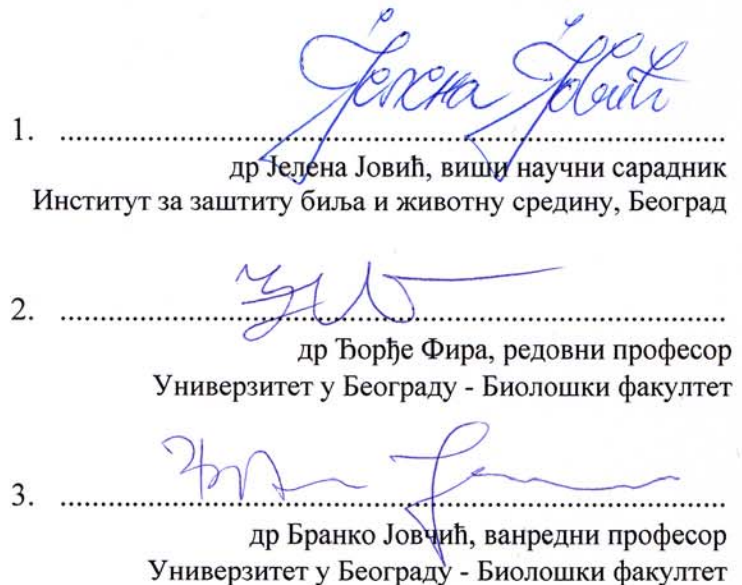 Јелена Јовић
1. ........................................................................................
др Јелена Јовић, виши научни сарадник
Институт за заштиту биља и животну средину, Београд
2. ........................................................................................
др Ђорђе Фира, редовни професор
Универзитет у Београду - Биолошки факултет
3. ........................................................................................
др Бранко Јовчић, ванредни професор
Универзитет у Београду - Биолошки факултет